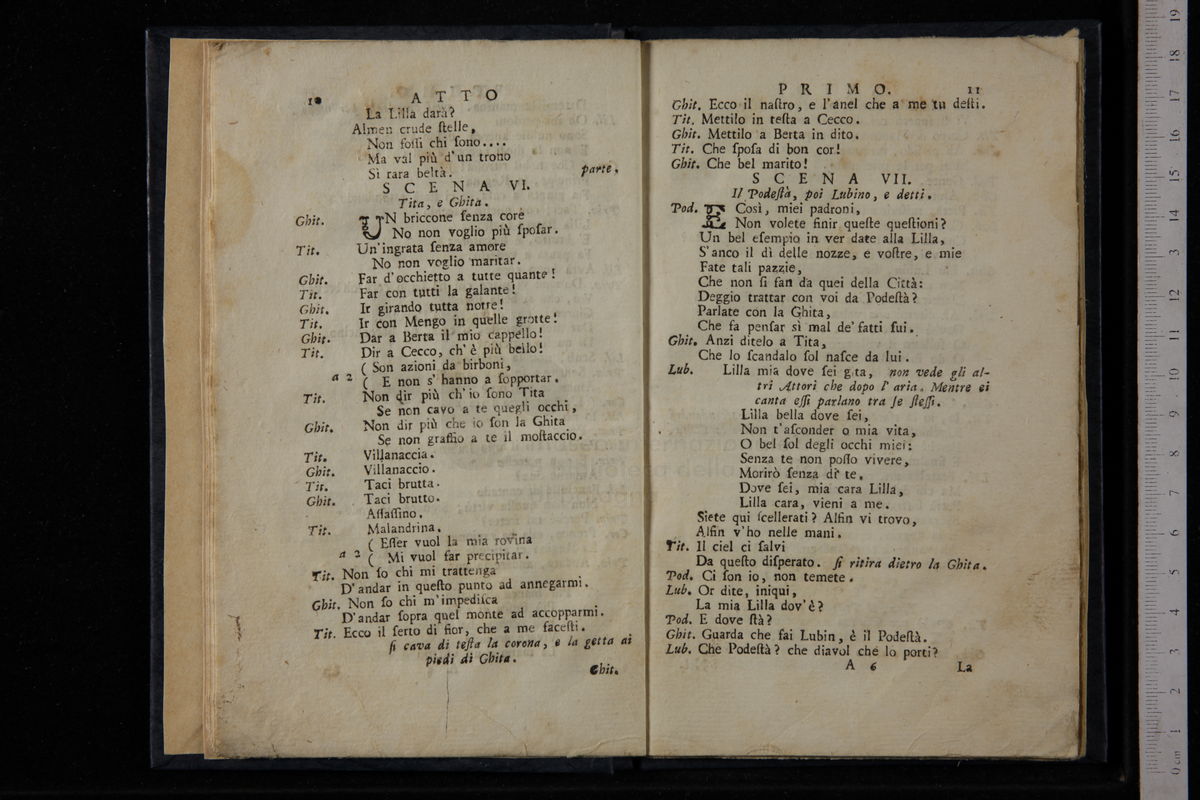 10 ATTO
La Lilla darà?
Almen crude ſtelle,
Non foſſi chi ſono....
Ma val più d'un trono
Sì rara beltà. parte.
SCENA VI.
Tita, e Ghita.
Ghit. UN briccone ſenza core
No non voglio più ſpoſar.
Tit. Un'ingrata ſenza amore
No non voglio maritar.
Ghit. Far d'occhietto a tutte quante!
Tit. Far con tutti la galante!
Ghit. Ir girando tutta notte!
Tit. Ir con Mengo in quelle grotte!
Ghit. Dar a Berta il mio cappello!
Tit. Dir a Cecco, ch'è più bello!
( Son azioni da birboni,
a 2 ( E non s'hanno a ſopportar.
Tit. Non dir più ch'io ſono Tita
Se non cavo a te quegli occhi,
Ghit. Non dir più che io ſon la Ghita
Se non graffio a te il moſtaccio.
Tit. Villanaccia.
Ghit. Villanaccio.
Tit. Taci brutta.
Ghit. Taci brutto.
Aſſaſſino.
Tit. Malandrina.
( Eſſer vuol la mia rovina
a 2 ( Mi vuol far precipitar.
Tit. Non ſo chi mi trattenga
D'andar in queſto punto ad annegarmi.
Ghit. Non ſo chi m'impediſca
D'andar ſopra quel monte ad accopparmi.
Tit. Ecco il ſerto di fior, che a me faceſti.
ſi cava di teſta la corona, e la getta ai
piedi di Ghita.
Ghit.
PRIMO. 11
Ghit. Ecco il naſtro, e l'anel che a me tu deſti.
Tit. Mettilo in teſta a Cecco.
Ghit. Mettilo a Berta in dito.
Tit. Che ſpoſa di bon cor!
Ghit. Che bel marito!
SCENA VII.
Il Podeſtà, poi Lubino, e detti.
Pod. E Così, miei padroni,
Non volete finir queſte queſtioni?
Un bel eſempio in ver date alla Lilla,
S'anco il dì delle nozze, e voſtre, e mie
Fate tali pazzie,
Che non ſi fan da quei della Città:
Deggio trattar con voi da Podeſtà?
Parlate con la Ghita,
Che fa penſar sì mal de' fatti ſui.
Ghit. Anzi ditelo a Tita,
Che lo ſcandalo ſol naſce da lui.
Lub. Lilla mia dove ſei gita, non vede gli al-
tri Attori che dopo l'aria. Mentre ei
canta eſſi parlano tra ſe ſteſſi.
Lilla bella dove ſei,
Non t'aſconder o mia vita,
O bel ſol degli occhi miei:
Senza te non poſſo vivere,
Morirò ſenza di te.
Dove ſei, mia cara Lilla,
Lilla cara, vieni a me.
Siete qui ſcellerati? Alfin vi trovo,
Alfin v'ho nelle mani.
Tit. Il ciel ci ſalvi
Da queſto diſperato. ſi ritira dietro la Ghita.
Pod. Ci ſon io, non temete.
Lub. Or dite, iniqui,
La mia Lilla dov'è?
Pod. E dove ſtà?
Ghit. Guarda che fai Lubin, è il Podeſtà.
Lub. Che Podeſtà? che diavol che lo porti?
A 6 La
0 cm 1 2 3 4 5 6 7 8 9 10 11 12 13 14 15 16 17 18 19